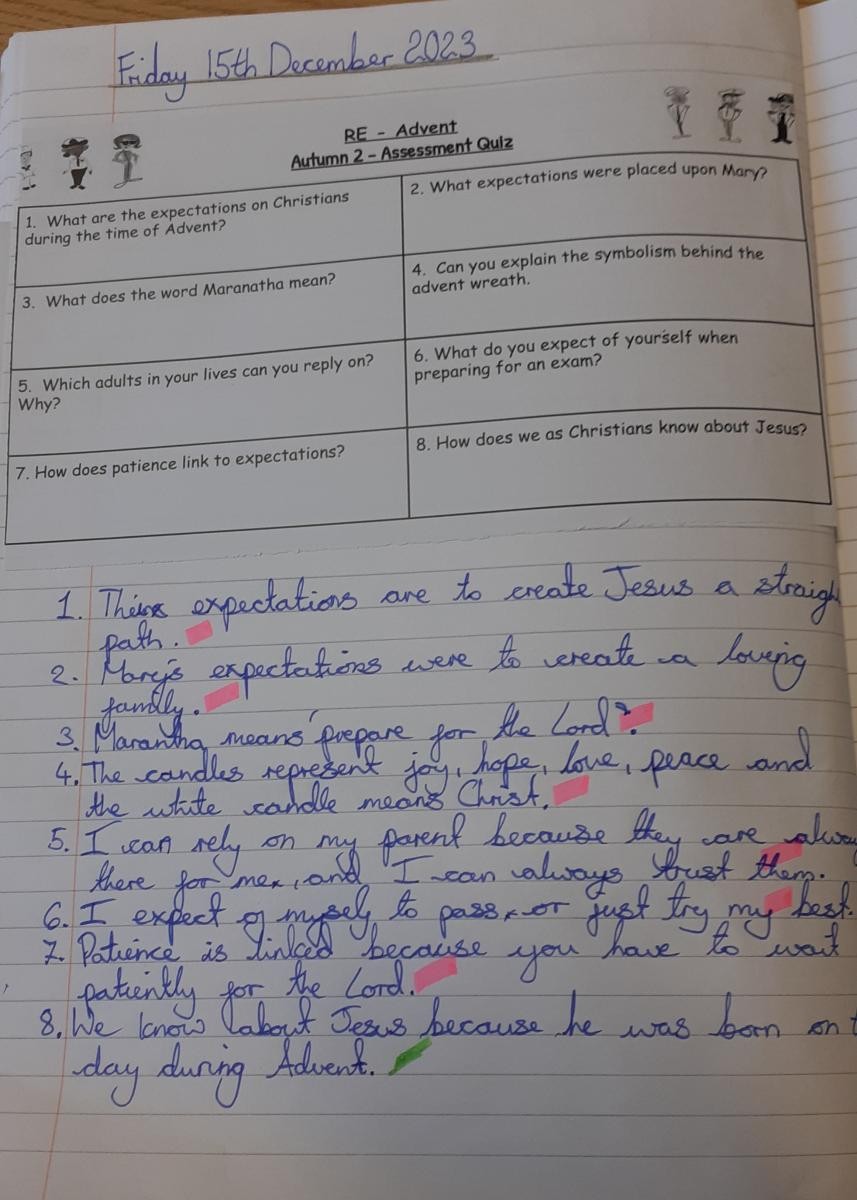 Friday 15th December 2023
RE - Advent
Autumn 2 - Assessment Quiz
1. What are the expectations on Christians
during the time of Advent?
2. What expectations were placed upon Mary?
3. What does the word Maranatha mean?
4. Can you explain the symbolism behind the
advent wreath.
5. Which adults in your lives can you reply on?
Why?
6. What do you expect of yourself when
preparing for an exam?
7. How does patience link to expectations?
8. How does we as Christians know about Jesus?
1. expectations are to create Jesus a straigh
path.
2. Mary's expectations were to create a loving
family.
3. Marantha means 'prepare for the Lord'.
4. The candles represent joy, hope, love, peace and
the white candle means Christ.
5. I can rely on my parent because they are alway
there for me, and I can always trust them.
6. I expect of mysely to pass, or just try my best.
7. Patience is linked because you have to wait
patiently for the Lord.
8. We know about Jesus because he was born on t
day during Advent.